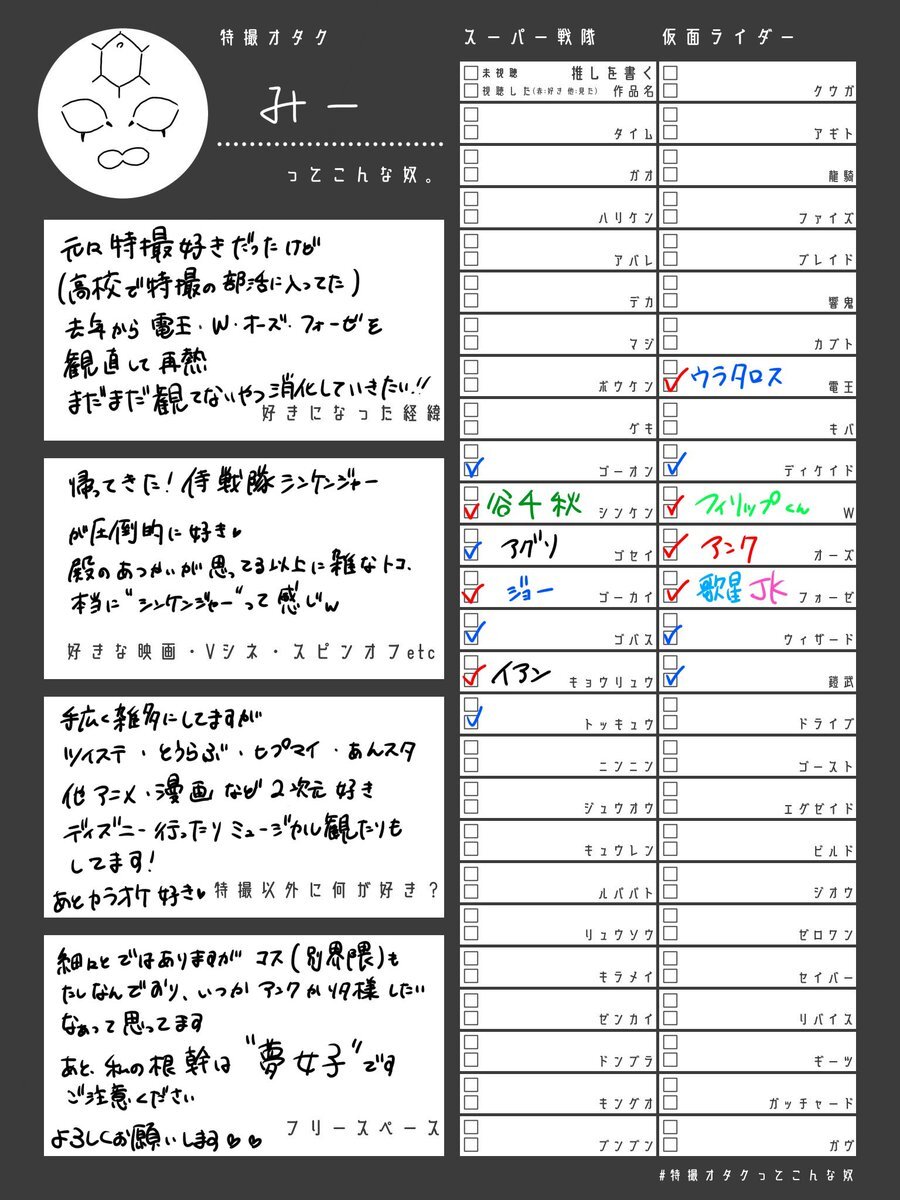 特撮オタク
みー
ってこんな奴。
元々特撮好きだったけど
(高校で特撮の部活に入ってた)
去年から電王・W・オーズ・フォーゼを
観直して再熱
まだまだ観てないやつ消化していきたい!!
好きになった経緯
帰ってきた!侍戦隊シンケンジャー
が圧倒的に好き♥
殿のあつかいが思ってる以上に雑なトコ、
本当に"シンケンジャー"って感じw
好きな映画・Vシネ・スピンオフetc
手広く雑多にしてますが
ツイステ・とうらぶ・ヒプマイ・あんスタ
他アニメ・漫画など2次元好き
ディズニー行ったりミュージカル観たりも
してます!
あとカラオケ好き♥
特撮以外に何が好き?
細々とではありますがコス(別界隈)も
たしなんでおり、いつかアンクかリタ様したい
なぁって思ってます
あと、私の根幹は"夢女子"です
ご注意ください
よろしくお願いします♥♥
フリースペース
スーパー戦隊
未視聴 推しを書く
視聴した(赤:好き 他:見た) 作品名
タイム
ガオ
ハリケン
アバレ
デカ
マジ
ボウケン
ゲキ
ゴーオン
谷千秋 シンケン
アグリ ゴセイ
ジョー ゴーカイ
ゴバス
イアン キョウリュウ
トッキュウ
ニンニン
ジュウオウ
キュウレン
ルパパト
リュウソウ
キラメイ
ゼンカイ
ドンブラ
キングオ
ブンブン
仮面ライダー
クウガ
アギト
龍騎
ファイズ
ブレイド
響鬼
カブト
ウラタロス 電王
キバ
ディケイド
フィリップくん W
アンク オーズ
歌星 JK フォーゼ
ウィザード
鎧武
ドライブ
ゴースト
エグゼイド
ビルド
ジオウ
ゼロワン
セイバー
リバイス
ギーツ
ガッチャード
ガヴ
#特撮オタクってこんな奴